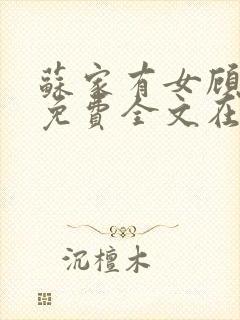 蘇家有女顾
免費全文在
沉檀木